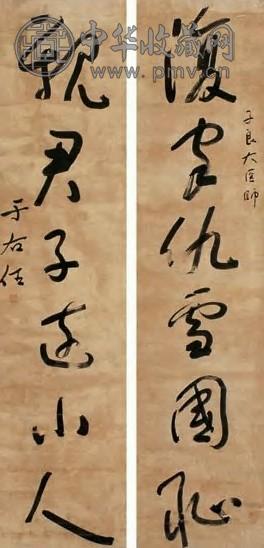 中华收藏网
www.pmv.cn
子良大医師
復家仇雪國恥
親君子遠小人
于右任